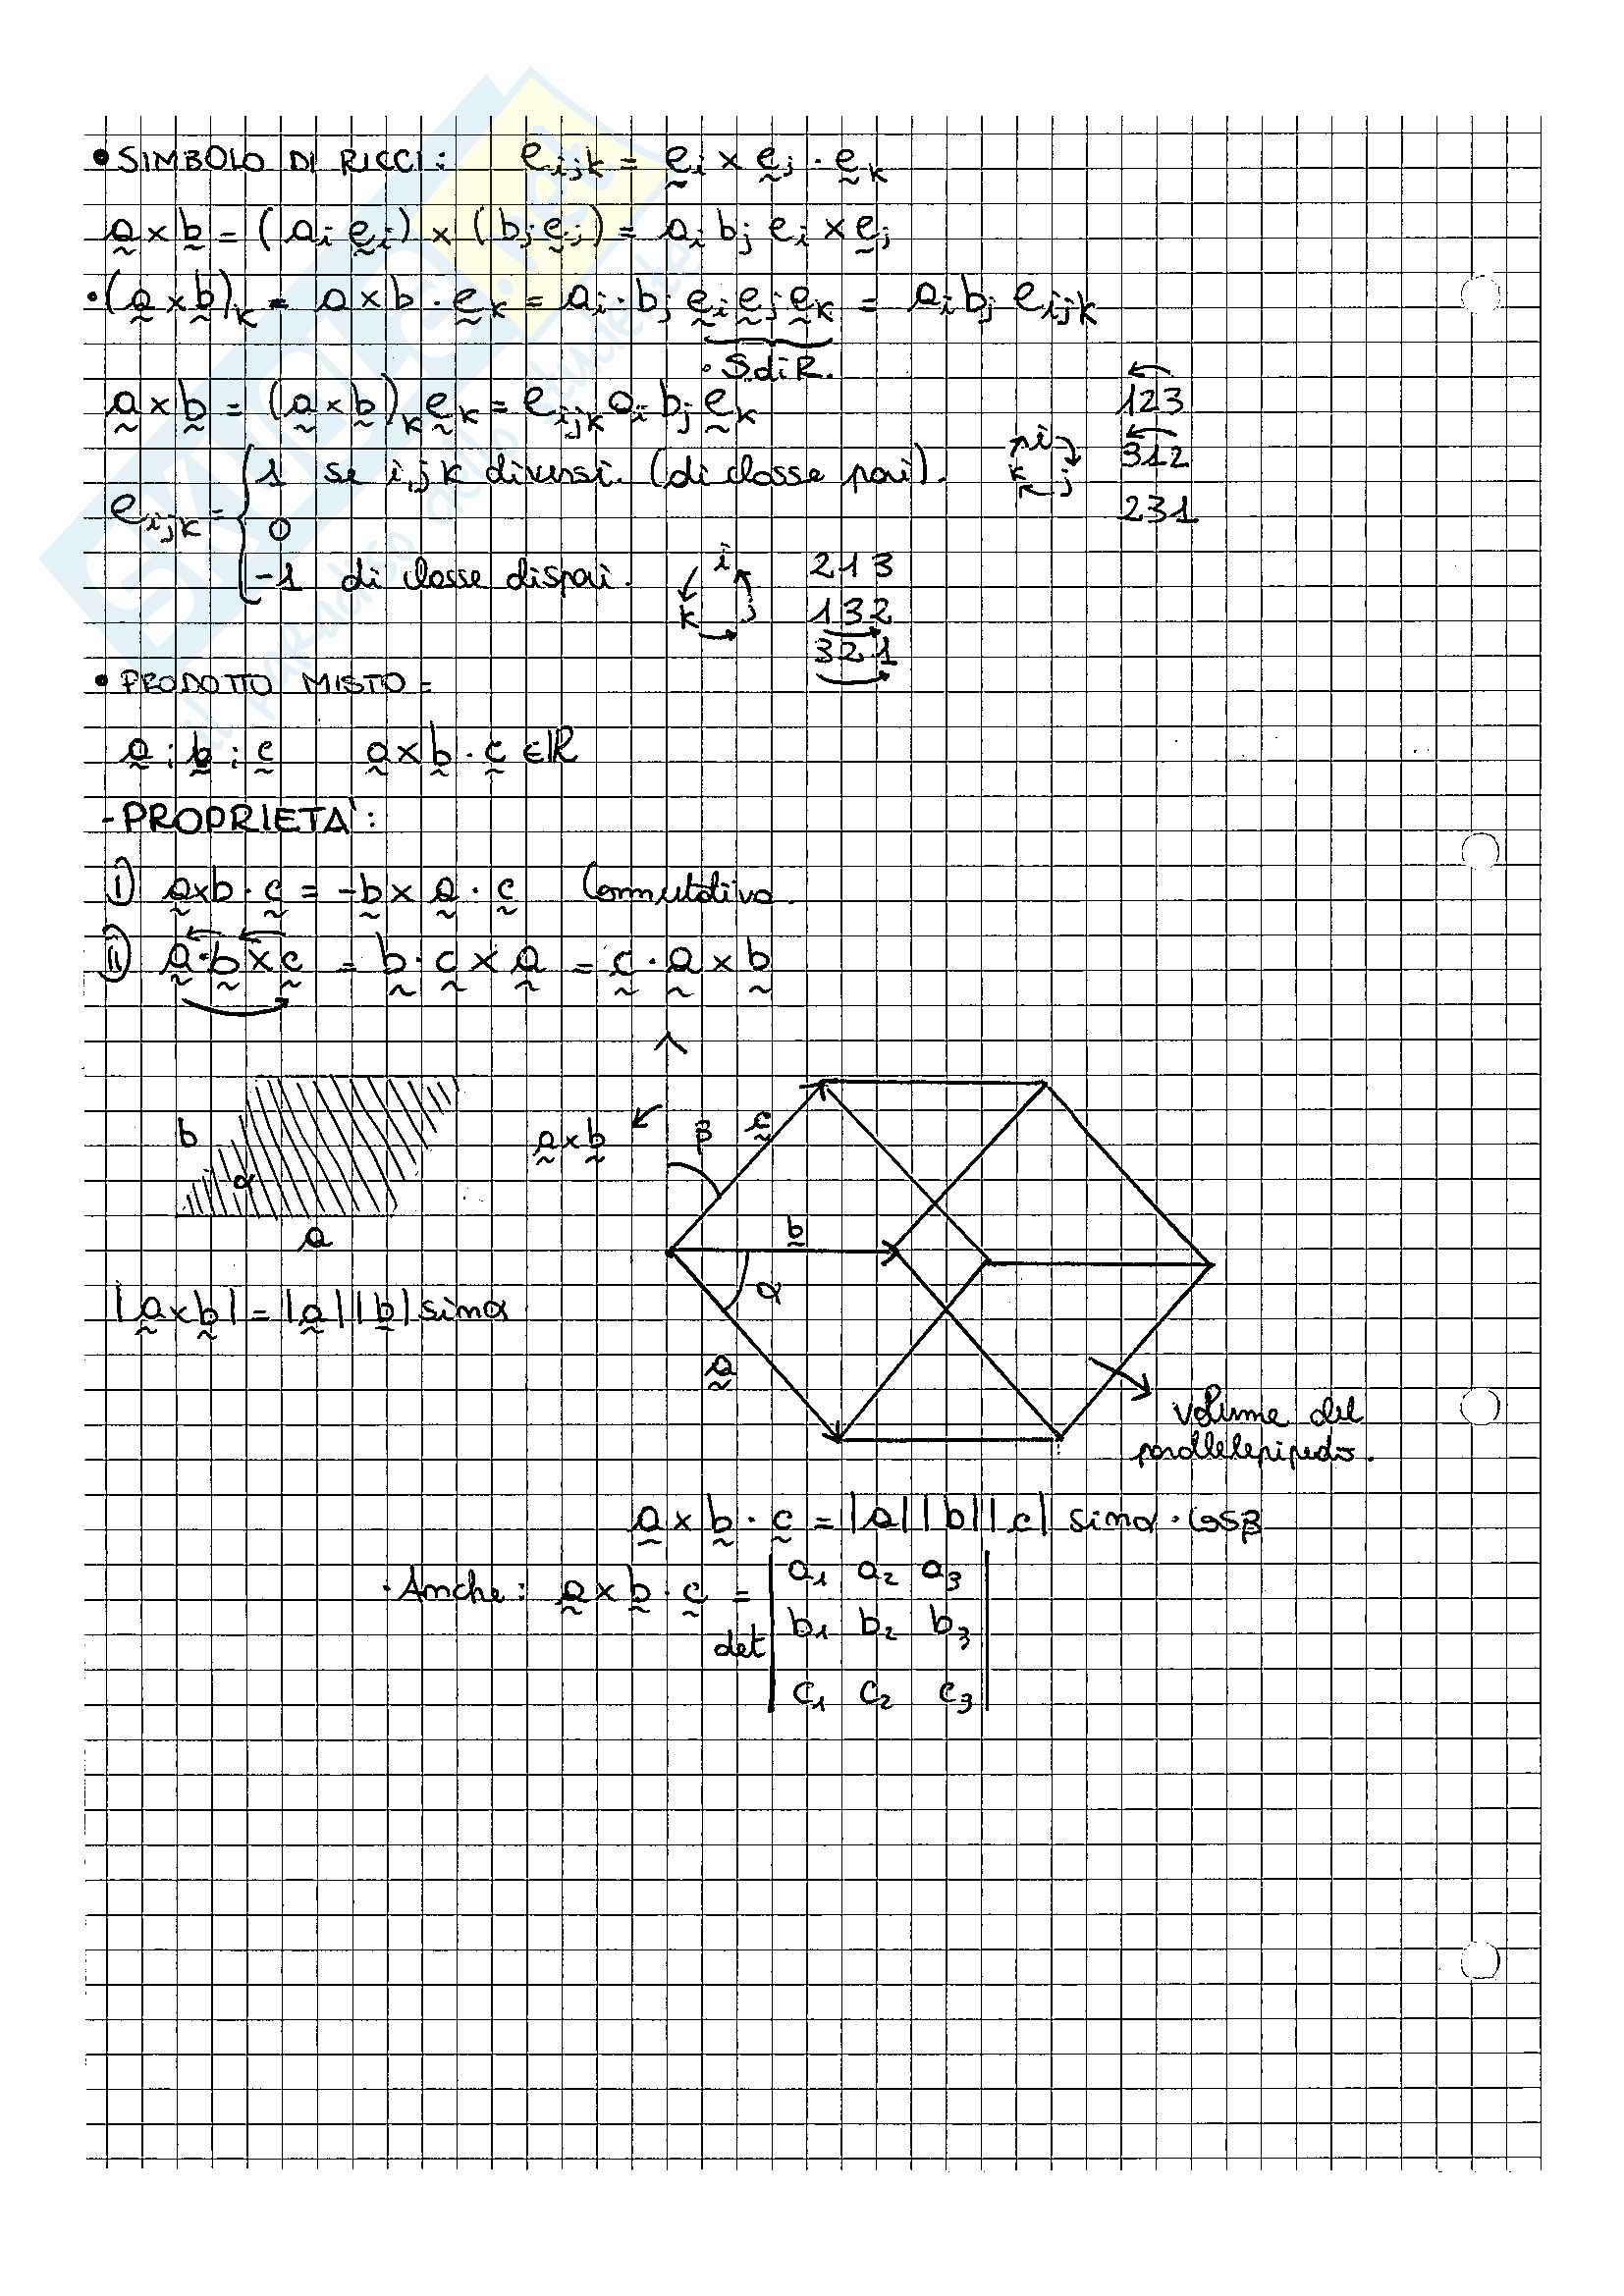 • SIMBOLO DI RICCI: e_ijk = e_i × e_j · e_k
a × b = (a_i e_i) × (b_j e_j) = a_i b_j e_i × e_j
• (a × b)_k = a × b · e_k = a_i · b_j e_i e_j e_k = a_i b_j e_ijk
• S di R.
a × b = (a × b)_k e_k = e_ijk a_i b_j e_k
123
312
231
i
k j
e_ijk = { 1 se i,j k diversi. (di classe pari).
0
-1 di classe dispari.
i
k j
213
132
321
• PRODOTTO MISTO =
a ; b ; c a × b · c ∈ ℝ
- PROPRIETA':
i) a × b · c = -b × a · c Commutativa.
ii) a · b × c = b · c × a = c · a × b
b
α
a
a × b
β
c
b
α
a
|a × b| = |a||b| sinα
volume del
parallelepipedo.
a × b · c = |a||b||c| sinα · cosβ
· Anche: a × b · c = det | a1 a2 a3 |
| b1 b2 b3 |
| c1 c2 c3 |
SKUOLA.net